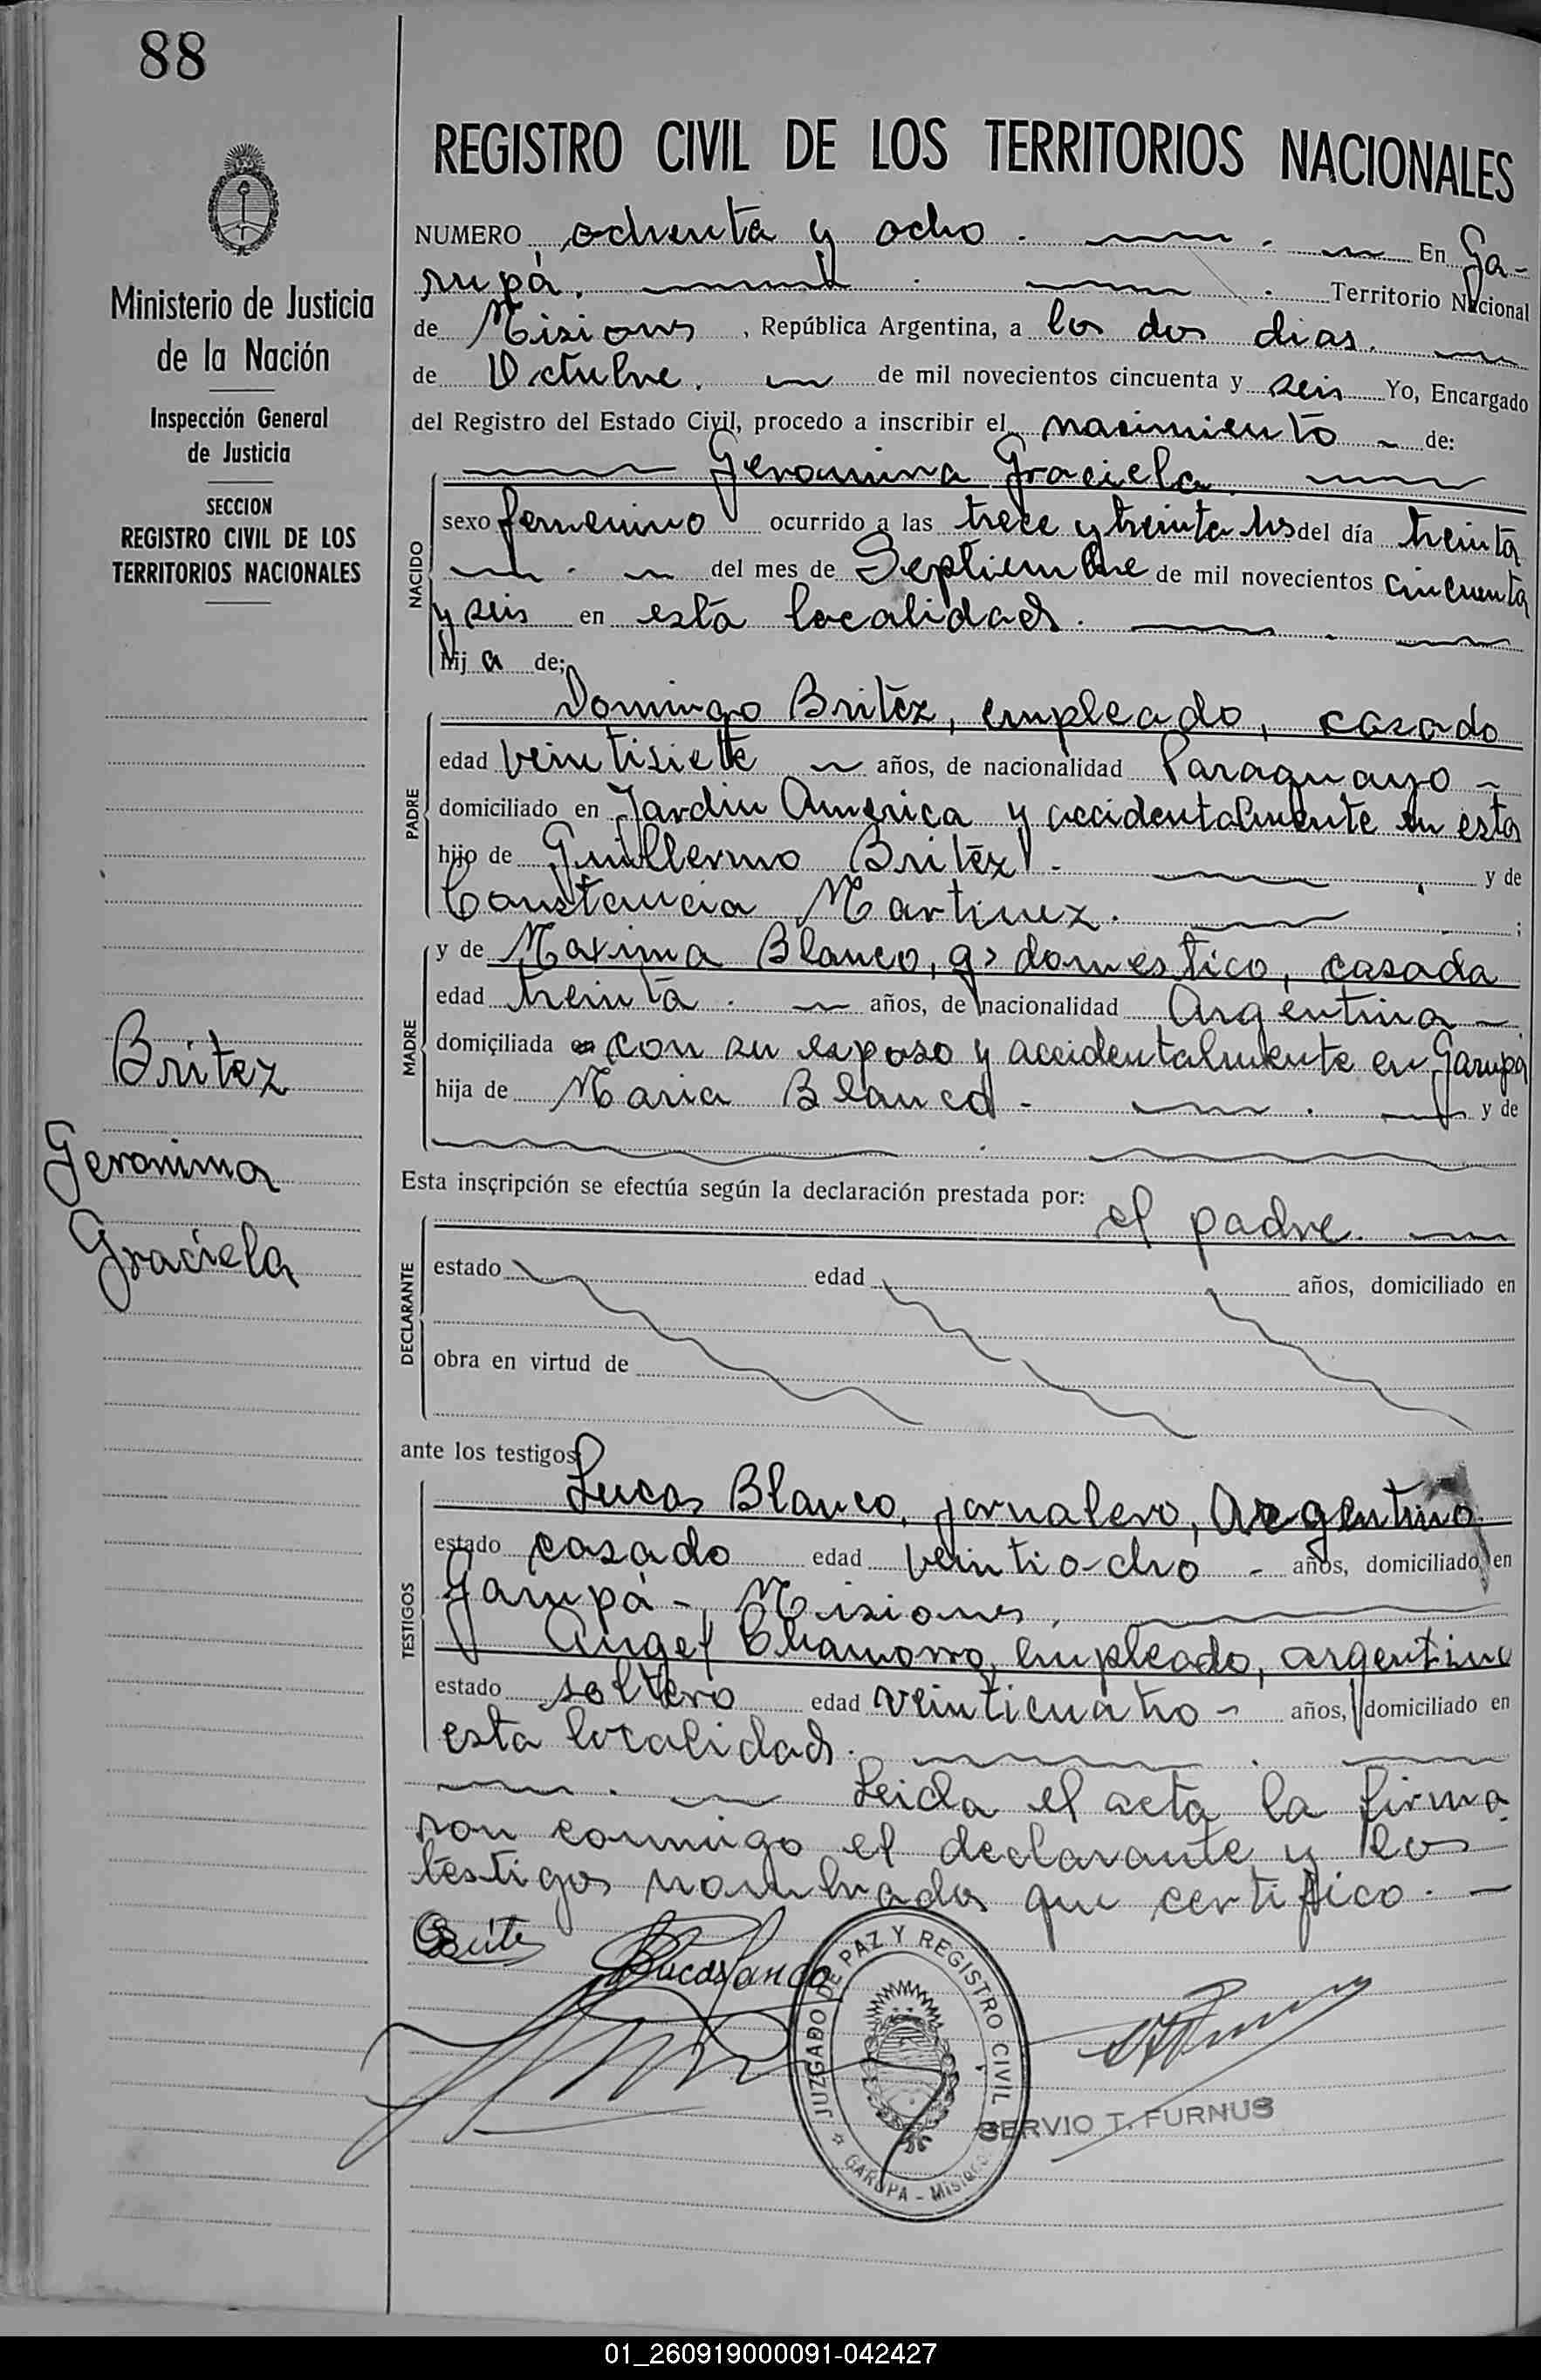 88
Ministerio de Justicia
de la Nación
Inspección General
de Justicia
SECCION
REGISTRO CIVIL DE LOS
TERRITORIOS NACIONALES
Britez
Geronima
Graciela
REGISTRO CIVIL DE LOS TERRITORIOS NACIONALES
NUMERO ochenta y ocho. En Ga-
rupá. Territorio Nacional
de Misiones, República Argentina, a los dos dias.
de Octubre. de mil novecientos cincuenta y seis Yo, Encargado
del Registro del Estado Civil, procedo a inscribir el nacimiento de:
Geronima Graciela.
NACIDO
sexo femenino ocurrido a las trece y treinta hs del día treinta
del mes de Septiembre de mil novecientos cincuenta
y seis en esta localidad.
hij a de:
PADRE
Domingo Britez, empleado, casado
edad veintisiete años, de nacionalidad Paraguayo
domiciliado en Jardin America y accidentalmente en esta
hijo de Guillermo Britez. y de
Constancia Martinez. ;
MADRE
y de Maxima Blanco, q> domestico, casada
edad treinta. años, de nacionalidad Argentina
domiciliada en con su esposo y accidentalmente en Garupá
hija de Maria Blanco. y de
Esta inscripción se efectúa según la declaración prestada por:
el padre.
DECLARANTE
estado edad años, domiciliado en
obra en virtud de
ante los testigos
TESTIGOS
Lucas Blanco, jornalero, Argentino
estado casado edad veintiocho - años, domiciliado en
Garupá - Misiones.
Angel Chamorro, empleado, argentino
estado soltero edad veinticuatro - años, domiciliado en
esta localidad.
Leida el acta la firma
ron conmigo el declarante y los
testigos nombrados que certifico. -
Lucas Blanco
JUZGADO DE PAZ Y REGISTRO CIVIL
GARUPA - Misiones
SERVIO T. FURNUS
01_260919000091-042427